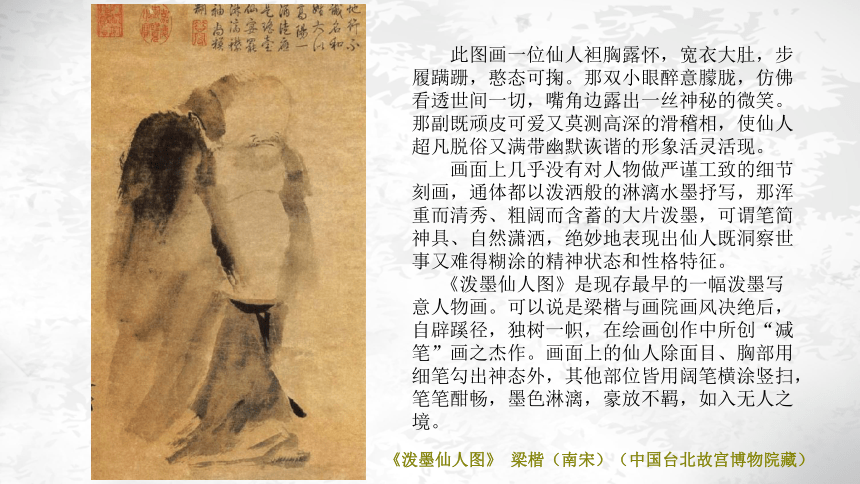 地行不
識名和
姓大似
高陽一
酒徒應
是瑤臺
仙宴罷
淋漓襟
袖尚模
糊
此图画一位仙人袒胸露怀，宽衣大肚，步
履蹒跚，憨态可掬。那双小眼醉意朦胧，仿佛
看透世间一切，嘴角边露出一丝神秘的微笑。
那副既顽皮可爱又莫测高深的滑稽相，使仙人
超凡脱俗又满带幽默诙谐的形象活灵活现。
画面上几乎没有对人物做严谨工致的细节
刻画，通体都以泼洒般的淋漓水墨抒写，那浑
重而清秀、粗阔而含蓄的大片泼墨，可谓笔简
神具、自然潇洒，绝妙地表现出仙人既洞察世
事又难得糊涂的精神状态和性格特征。
《泼墨仙人图》是现存最早的一幅泼墨写
意人物画。可以说是梁楷与画院画风决绝后，
自辟蹊径，独树一帜，在绘画创作中所创“减
笔”画之杰作。画面上的仙人除面目、胸部用
细笔勾出神态外，其他部位皆用阔笔横涂竖扫，
笔笔酣畅，墨色淋漓，豪放不羁，如入无人之
境。
《泼墨仙人图》 梁楷（南宋）（中国台北故宫博物院藏）